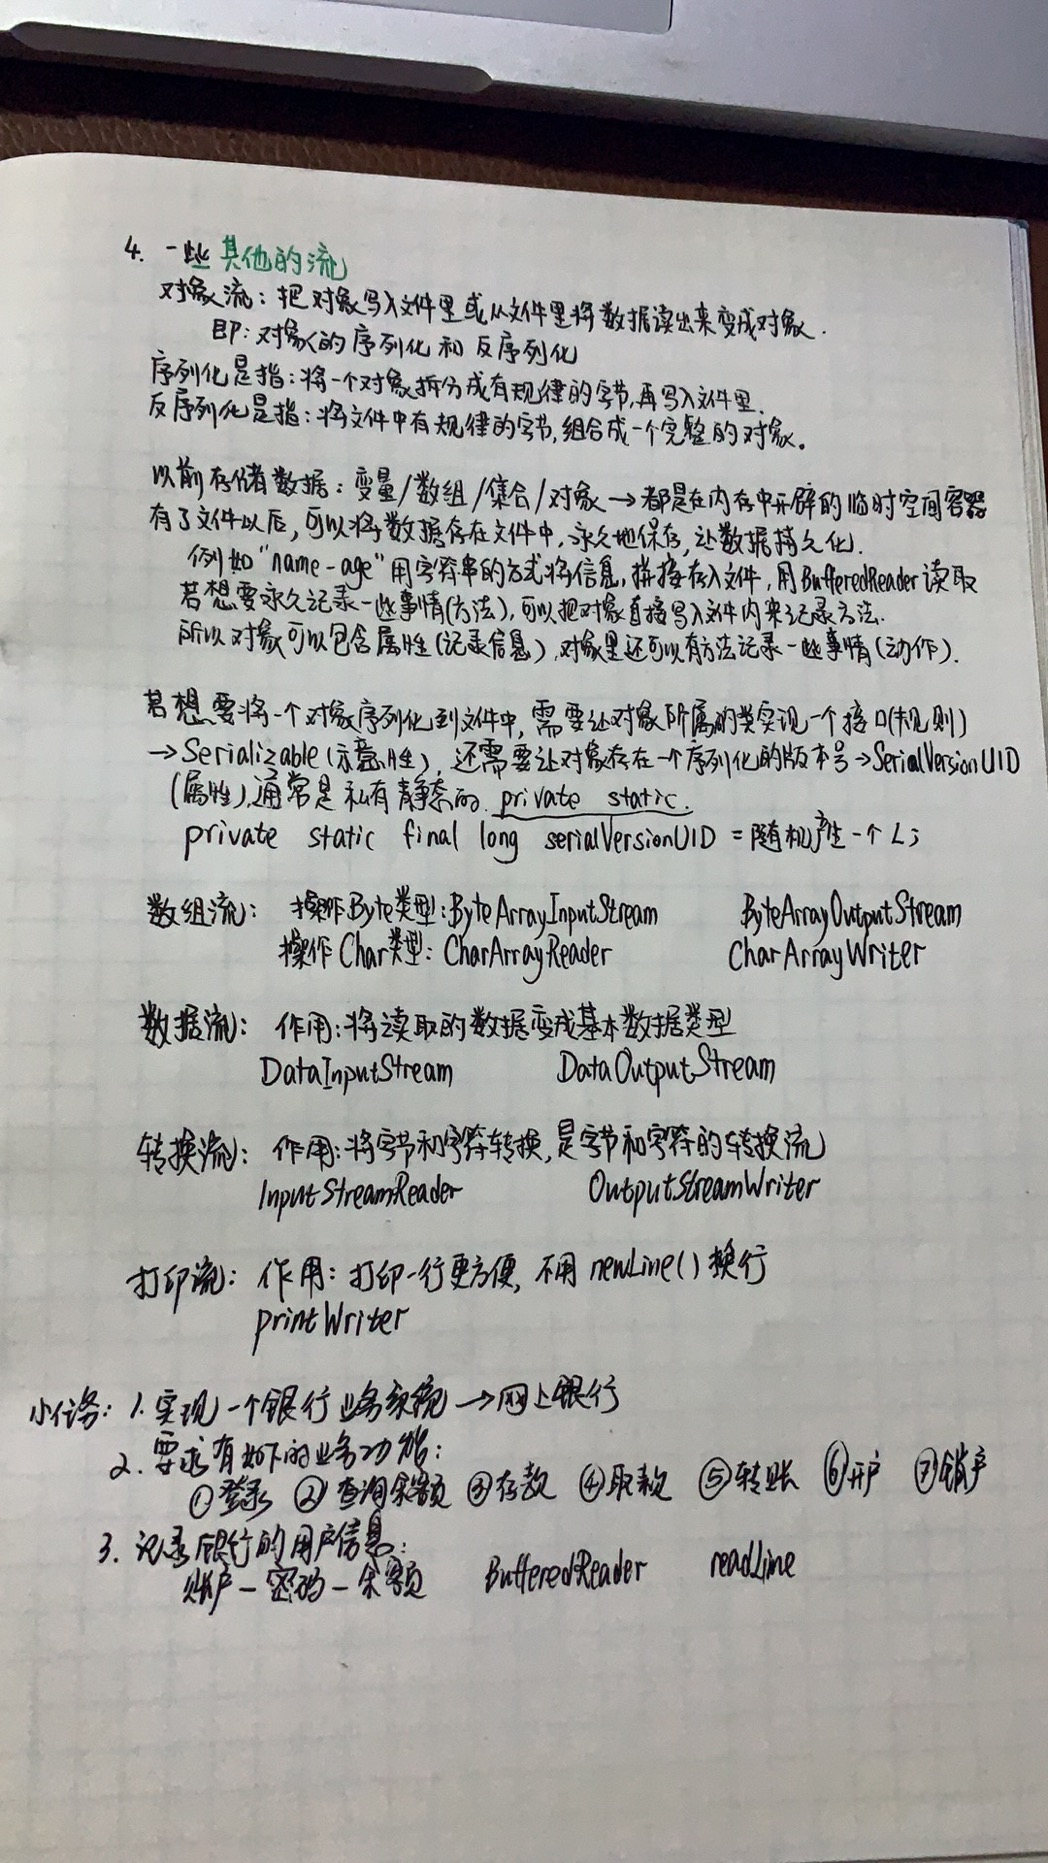 4. 一些其他的流
对象流：把对象写入文件里或从文件里将数据读出来变成对象.
即：对象的序列化和反序列化
序列化是指：将一个对象拆分成有规律的字节,再写入文件里.
反序列化是指：将文件中有规律的字节,组合成一个完整的对象。
以前存储数据：变量/数组/集合/对象→都是在内存中开辟的临时空间容器
有了文件以后,可以将数据存在文件中,永久地保存,让数据持久化.
例如"name-age"用字符串的方式将信息,拼接存入文件,用BufferedReader读取
若想要永久记录一些事情(方法),可以把对象直接写入文件内来记录方法.
所以对象可以包含属性(记录信息),对象里还可以有方法记录一些事情(动作).
若想要将一个对象序列化到文件中,需要让对象所属的类实现一个接口(规则)
→Serializable(示意性),还需要让对象存在一个序列化的版本号→SerialVersionUID
(属性),通常是私有静态的 private static.
private static final long serialVersionUID = 随机产生一个L;
数组流： 操作Byte类型:ByteArrayInputStream ByteArrayOutputStream
操作Char类型：CharArrayReader CharArrayWriter
数据流： 作用:将读取的数据变成基本数据类型
DataInputStream DataOutputStream
转换流： 作用:将字节和字符转换,是字节和字符的转换流
InputStreamReader OutputStreamWriter
打印流： 作用：打印一行更方便,不用newLine()换行
printWriter
小任务：1.实现一个银行业务系统→网上银行
2.要求有如下的业务功能：
①登录 ②查询余额 ③存款 ④取款 ⑤转账 ⑥开户 ⑦销户
3.记录银行的用户信息：
账户-密码-余额 BufferedReader readLine